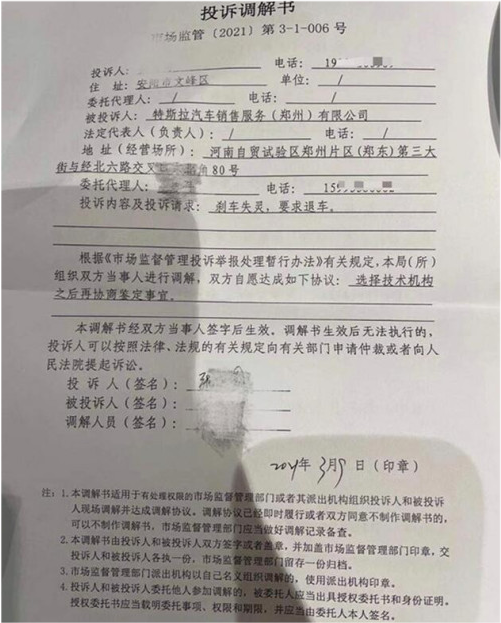 投诉调解书
市场监管〔2021〕第3-1-006号
投诉人： 电话：19
住 址：安阳市文峰区 单位： /
委托代理人： / 电话： /
被投诉人：特斯拉汽车销售服务（郑州）有限公司
法定代表人（负责人）： / 电话： /
地 址（经营场所）：河南自贸试验区郑州片区（郑东）第三大
街与经北六路交叉 角80号
委托代理人： 电话：15
投诉内容及投诉请求：刹车失灵，要求退车。
根据《市场监督管理投诉举报处理暂行办法》有关规定，本局（所）
组织双方当事人进行调解，双方自愿达成如下协议：选择技术机构
之后再协商鉴定事宜。
本调解书经双方当事人签字后生效。调解书生效后无法执行的，
投诉人可以按照法律、法规的有关规定向有关部门申请仲裁或者向人
民法院提起诉讼。
投 诉 人（签名）：
被投诉人（签名）：
调解人员（签名）：
2021年3月9日（印章）
注：1.本调解书适用于有处理权限的市场监督管理部门或者其派出机构组织投诉人和被投诉
人现场调解并达成调解协议。调解协议已经即时履行或者双方同意不制作调解书的，
可以不制作调解书，市场监督管理部门应当做好调解记录备查。
2.本调解书由投诉人和被投诉人双方签字或者盖章，并加盖市场监督管理部门印章，交
投诉人和被投诉人各执一份，市场监督管理部门留存一份归档。
3.市场监督管理部门派出机构以自己名义组织调解的，使用派出机构印章。
4.投诉人和被投诉人委托他人参加调解的，被委托人应当出具授权委托书和身份证明。
授权委托书应当载明委托事项、权限和期限，并应当由委托人本人签名。